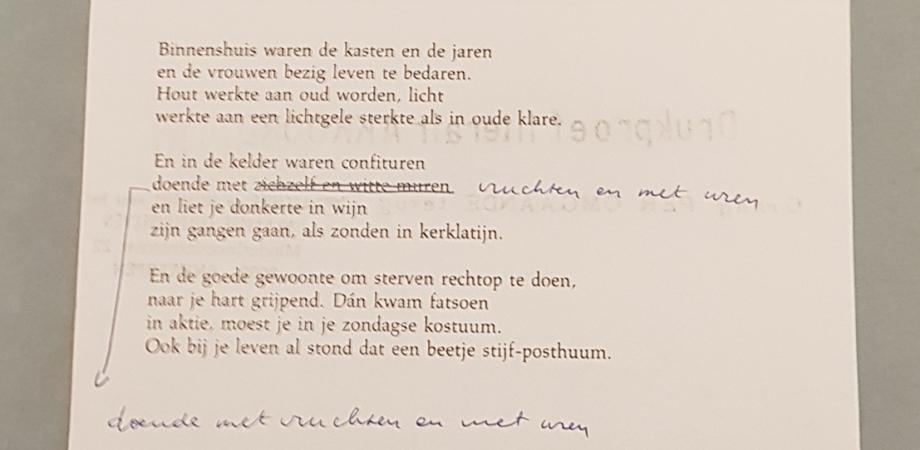 Binnenshuis waren de kasten en de jaren
en de vrouwen bezig leven te bedaren.
Hout werkte aan oud worden, licht
werkte aan een lichtgele sterkte als in oude klare.
En in de kelder waren confituren
doende met zichzelf en witte muren vruchten en met uren
en liet je donkerte in wijn
zijn gangen gaan, als zonden in kerklatijn.
En de goede gewoonte om sterven rechtop te doen,
naar je hart grijpend. Dán kwam fatsoen
in aktie, moest je in je zondagse kostuum.
Ook bij je leven al stond dat een beetje stijf-posthuum.
doende met vruchten en met uren